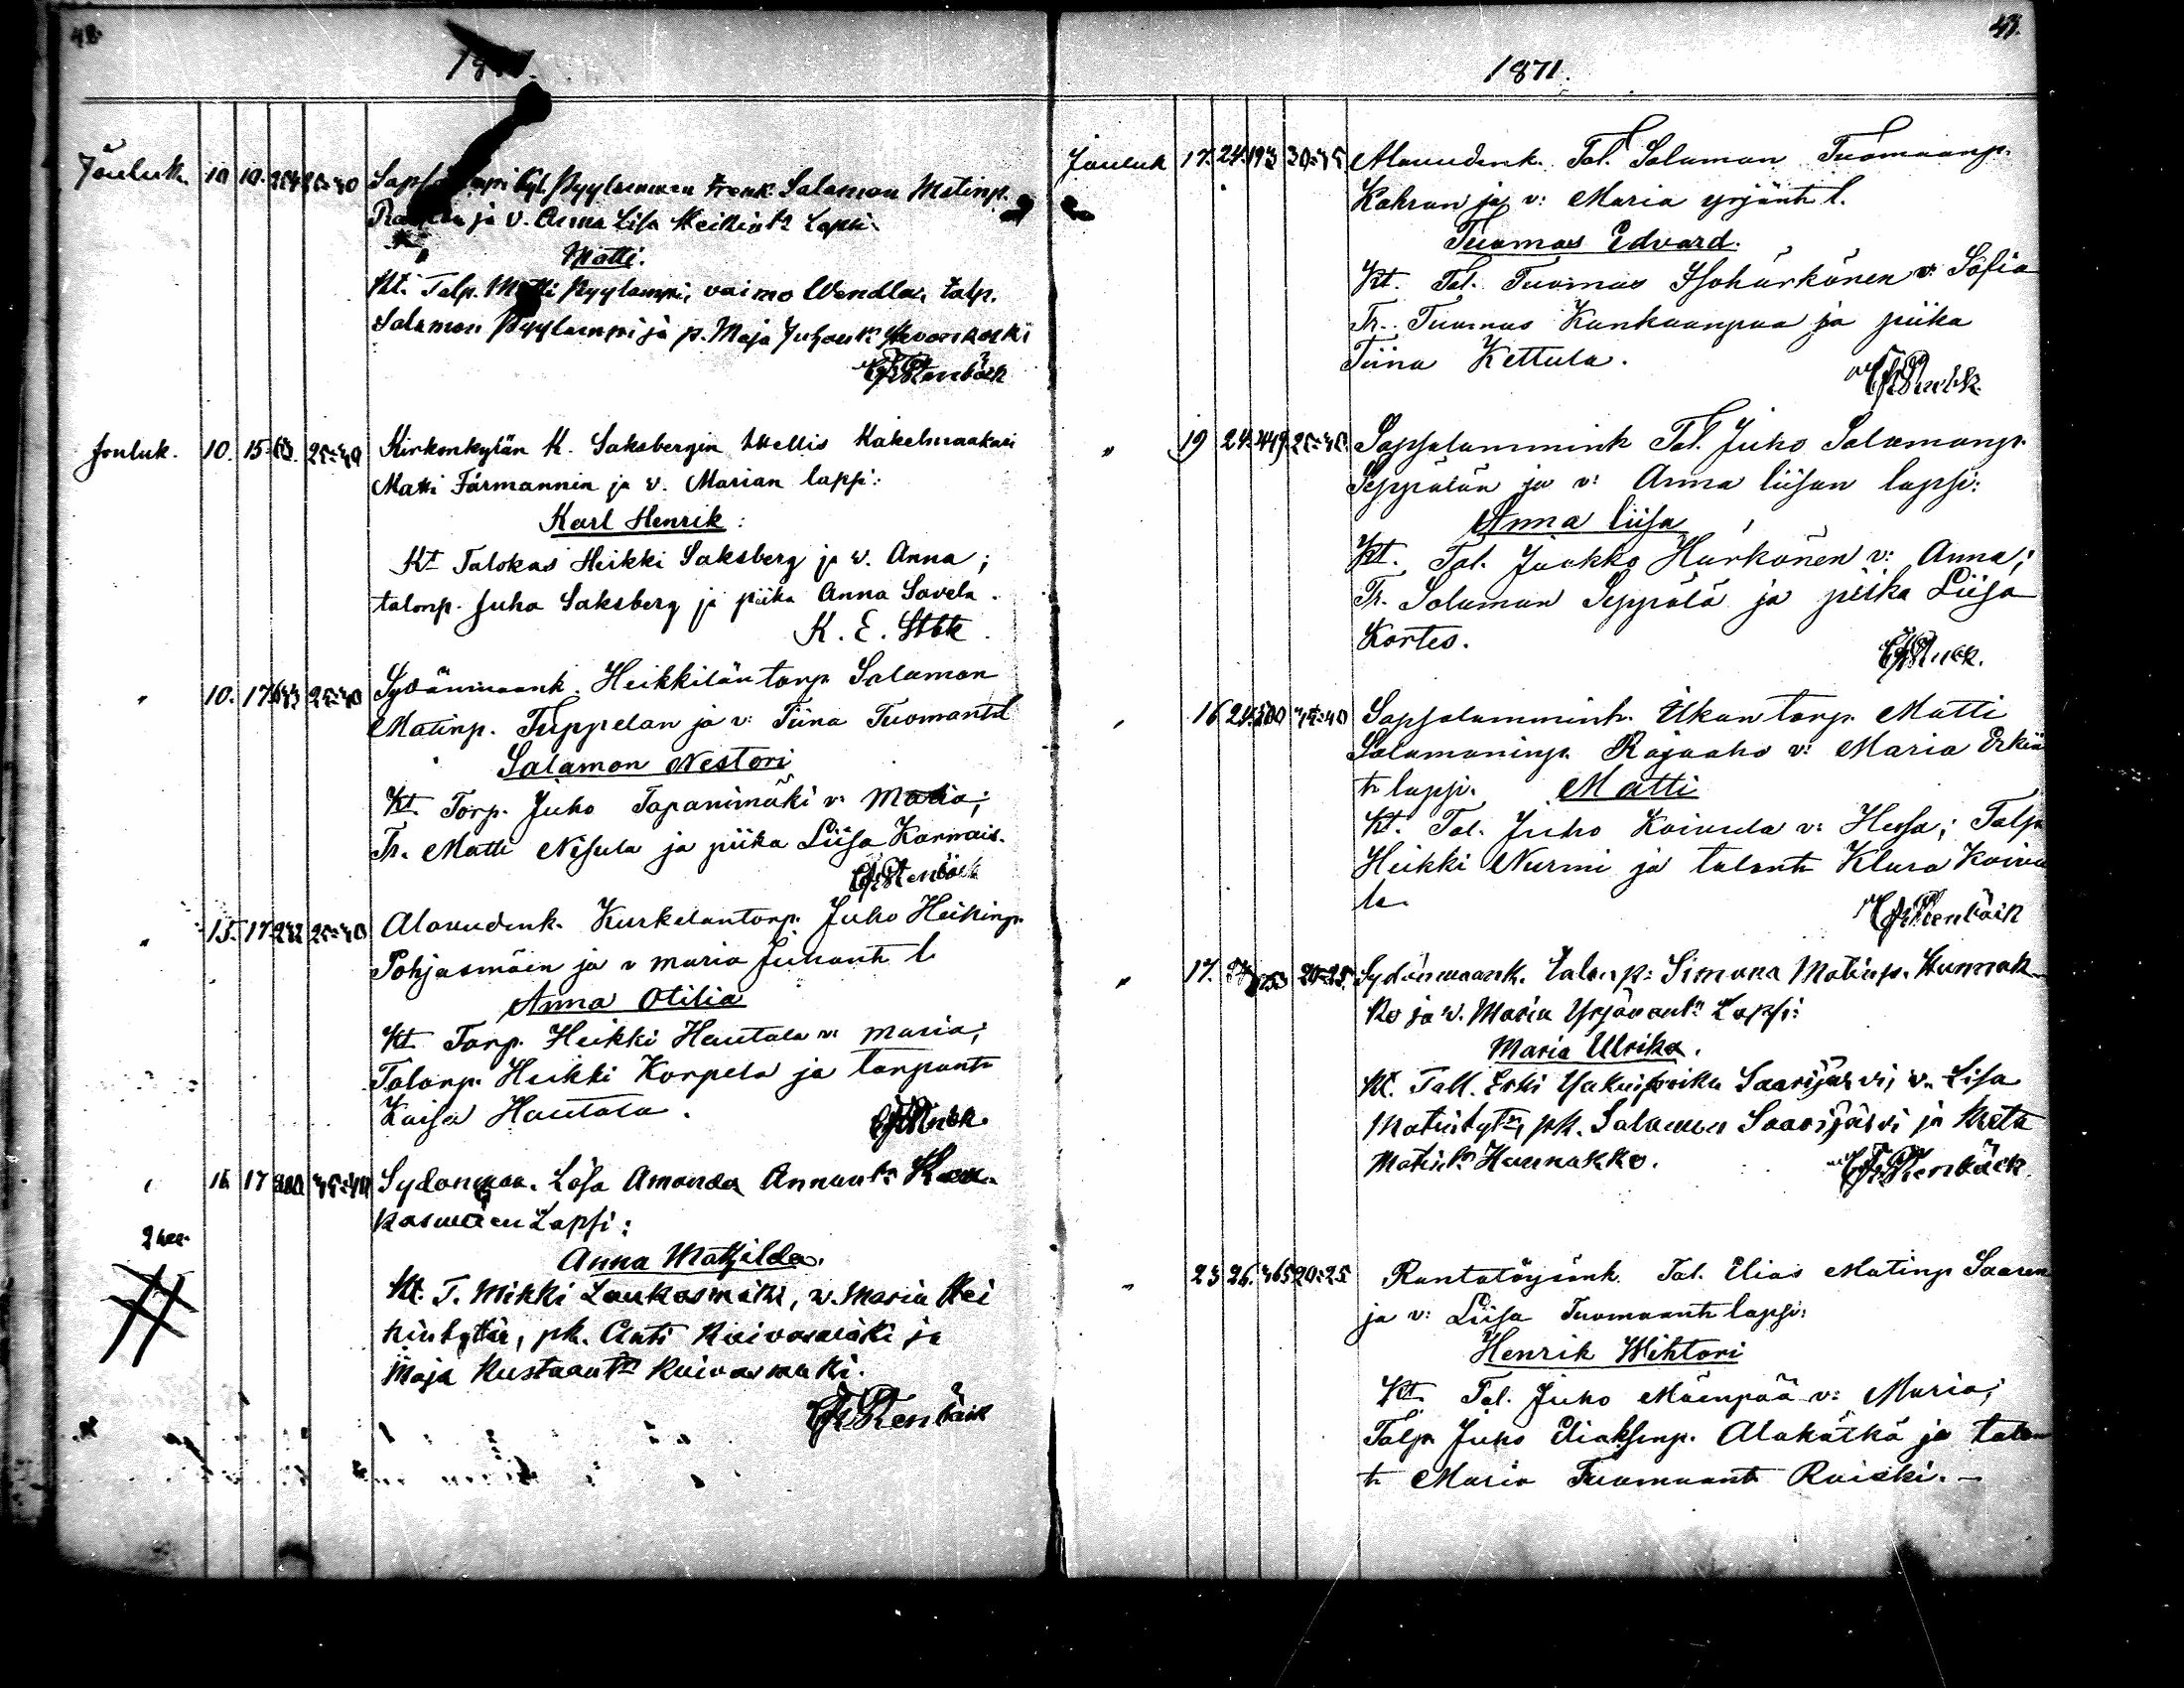 42.
1871.
Jouluk. 10 10. 254 35-40 Kyl. Pyylammen Frenk. Salamon Matinp.
ja v. Anna Lisa Heikintr Lapsi.
Matti.
Kt. Talp. Matti Pyylampi, vaimo Wendla, talp.
Salamon Pyylampi ja p. Maja Juhontr Hevonkoski
CFrStenbäck
Jouluk. 10. 15. 63. 25-40 Kirkonkylän K. Saksbergin Wellis Kakelmaakari
Matti Färmannin ja v. Marian lapsi:
Karl Henrik:
Kt Talokas Heikki Saksberg ja v. Anna;
talonp. Juha Saksberg ja piika Anna Savela.
K. E. Stbk.
" 10. 17. 633 25-40 Sydänmaank. Heikkilän torp. Salamon
Matinp. Tuppelan ja v: Tiina Tuomant l.
Salamon Nestori
Kt. Torp. Juho Tapanimäki v: Maria;
Tr. Matti Nisula ja piika Liisa Karnais.
CFrStenbäck
" 15. 17. 232 25-40 Alavudenk. Kurkelantorp. Juho Heikinp.
Pohjasmäen ja v maria Juhantr l.
Anna Otilia
Kt. Torp. Heikki Hautala v: maria;
Talonp. Heikki Korpela ja torpantr
Kaisa Hautala.
CFrStnbk.
" 16. 17 35-40 Sydänmaa. Lisa Amanda Annantr
Lapsi:
2 kee.
Anna Mathilda.
Kt. T. Mikki Laukasmäki, v. Maria Hei
kintytär, pk. Anti Raivasmäki ja
Maja Kustaantr Raivasmäki.
CFrStenbäck
43.
1871.
Jouluk 17. 24. 193 30-35 Alavudenk. Tal. Salamon Tuomaanp.
Kahran ja v: Maria yrjäntr l.
Tuomas Edvard.
Kt. Tal. Tuomas Isohärkönen v: Sofia
Tr. Tuomas Kankaanpaa ja piika
Tiina Kettula.
CFrStnbk.
" 19 24. 449 25-40. Sapsalammink Tal. Juho Salamonp.
Seppälän ja v: Anna liisan lapsi:
Anna liisa
Kt. Tal. Jaakko Härkönen v: Anna;
Tr. Salamon Seppälä ja piika Liisa
Kortes.
CFrStnbk.
" 16 24. 500 35-40 Sapsalammink. Ukon torp. Matti
Salamoninp. Rajaaho v: Maria Erkin
tr lapsi. Matti
Kt. Tal. Juho Koivula v: Hessa; Talp.
Heikki Nurmi ja talontr Klara Koivu
la.
CFrStenbäck
" 17. 20-25. Sydänmaank. Talonp: Simona Matinp. Hunnak
ko ja v. Maria Yrjäväntr Lapsi:
Maria Ulrika.
Kt. Tall. Erki Yakuipoika Saarijärvi, v. Lisa
Matintytr, pk. Salamon Saarijärvi ja Kreta
Matintr Hunnakko.
CFrStenbäck.
" 23 26. 365 20-25 Rantatöysänk. Tal. Elias Matinp. Saaren
ja v: Liisa Tuomaantr lapsi:
Henrik Wihtori
Kt. Tal. Juho Mäenpää v: Maria;
Talp. Juho Eliaksenp. Alakätkä ja talon
tr Maria Tuomaantr Raiski. —